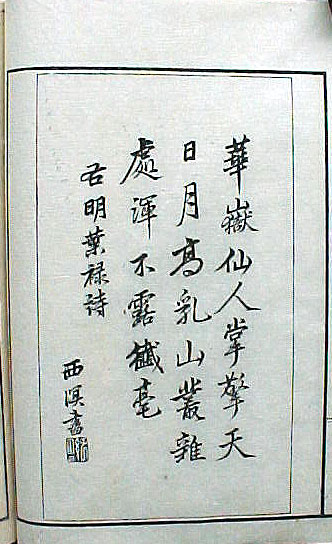 華嶽仙人掌擎天
日月高乳山叢雜
處渾不露纖毫
右明葉祿詩
西溟書